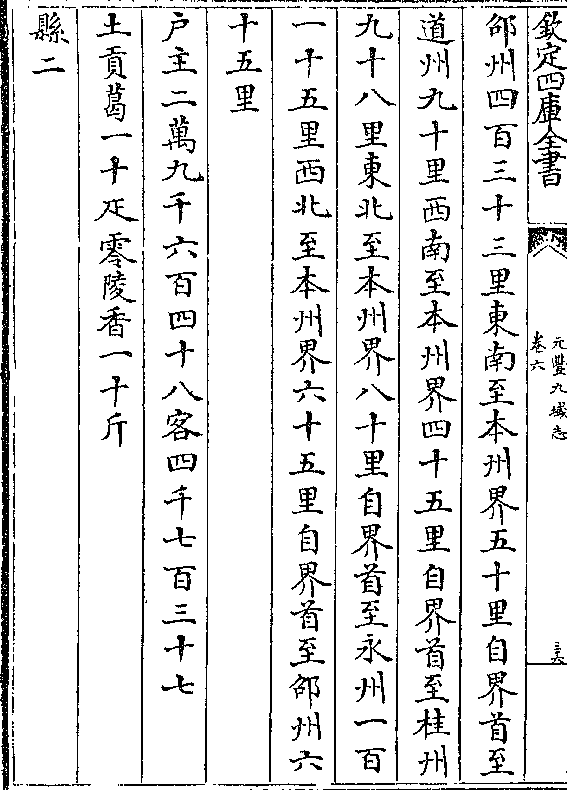 欽定四庫全書
元豐九域志
卷六
邵州四百三十三里東南至本州界五十里自界首至
道州九十里西南至本州界四十五里自界首至桂州
九十八里東北至本州界八十里自界首至永州一百
一十五里西北至本州界六十五里自界首至邵州六
十五里
戸主二萬九千六百四十八客四千七百三十七
土貢葛一十疋零陵香一十斤
縣二